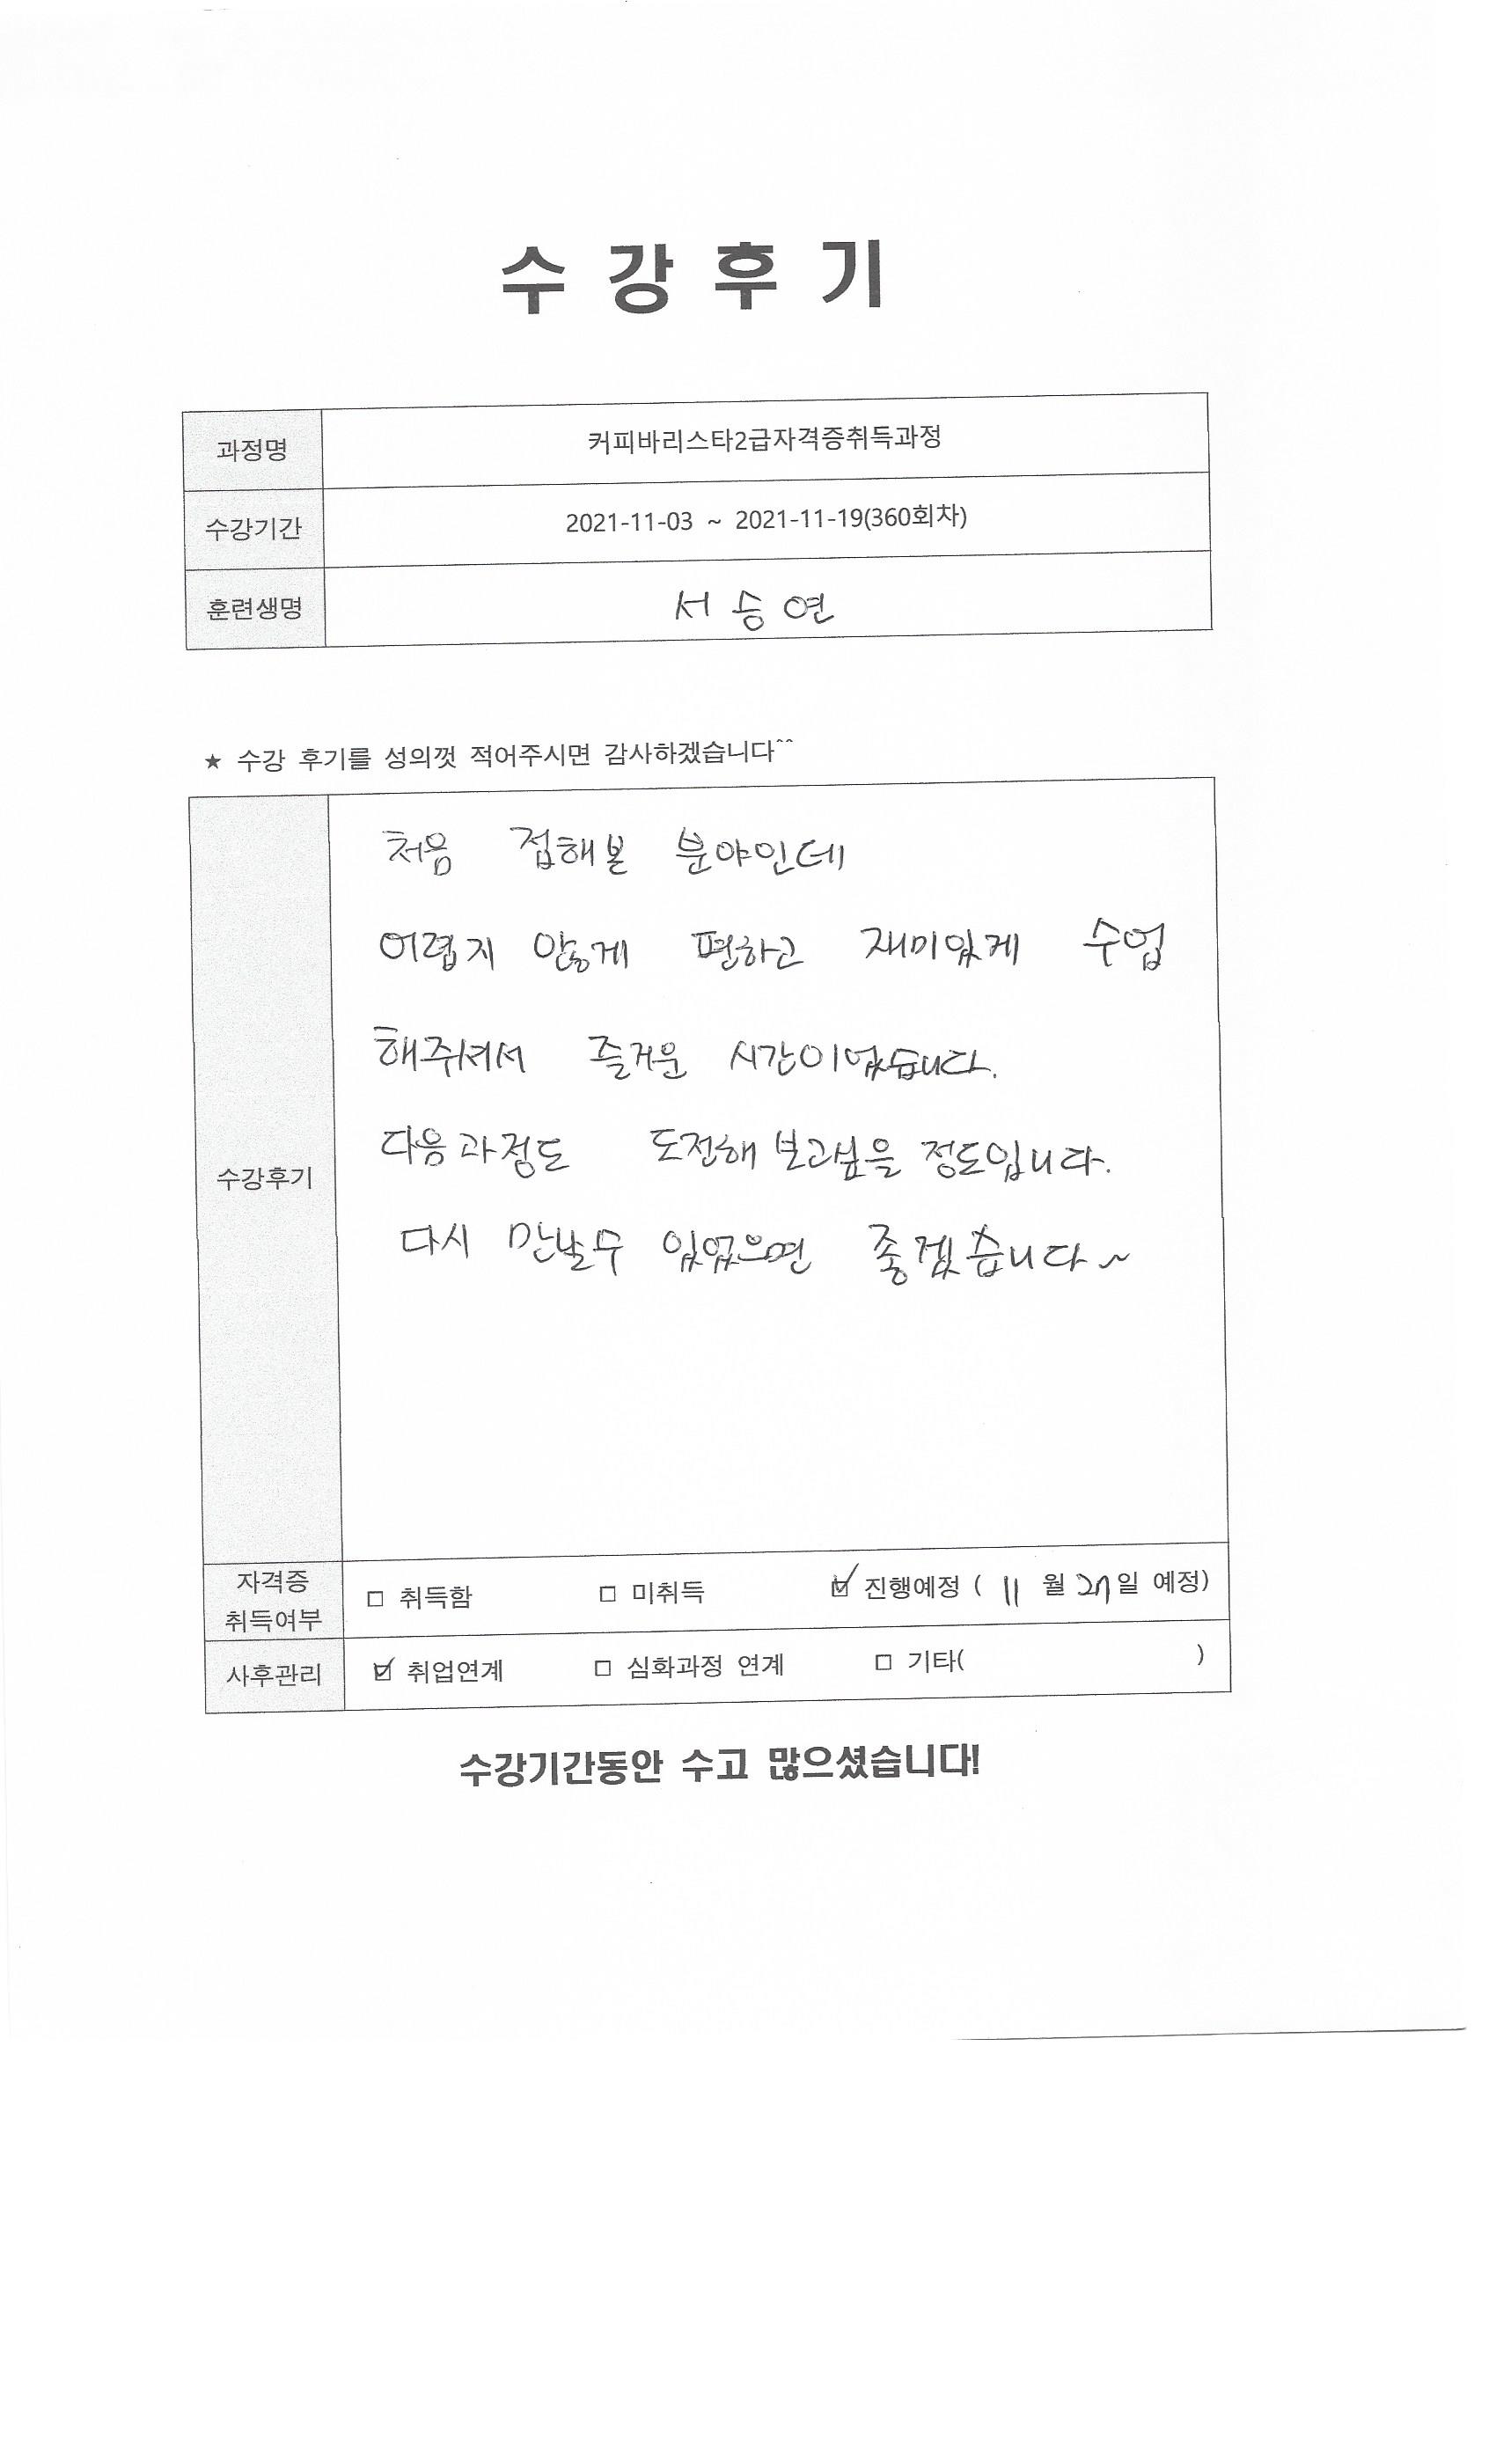 수 강 후 기
과정명 커피바리스타2급자격증취득과정
수강기간 2021-11-03 ~ 2021-11-19(360회차)
훈련생명 서승연
★ 수강 후기를 성의껏 적어주시면 감사하겠습니다^^
처음 접해본 분야인데
어렵지 않게 편하고 재미있게 수업
해주셔서 즐거운 시간이었습니다.
다음과정도 도전해 보고싶을 정도입니다.
수강후기
다시 만날수 있었으면 좋겠습니다~
자격증
취득여부
□ 취득함 □ 미취득 ☑ 진행예정 ( 11 월 27일 예정)
사후관리 ☑ 취업연계 □ 심화과정 연계 □ 기타( )
수강기간동안 수고 많으셨습니다!